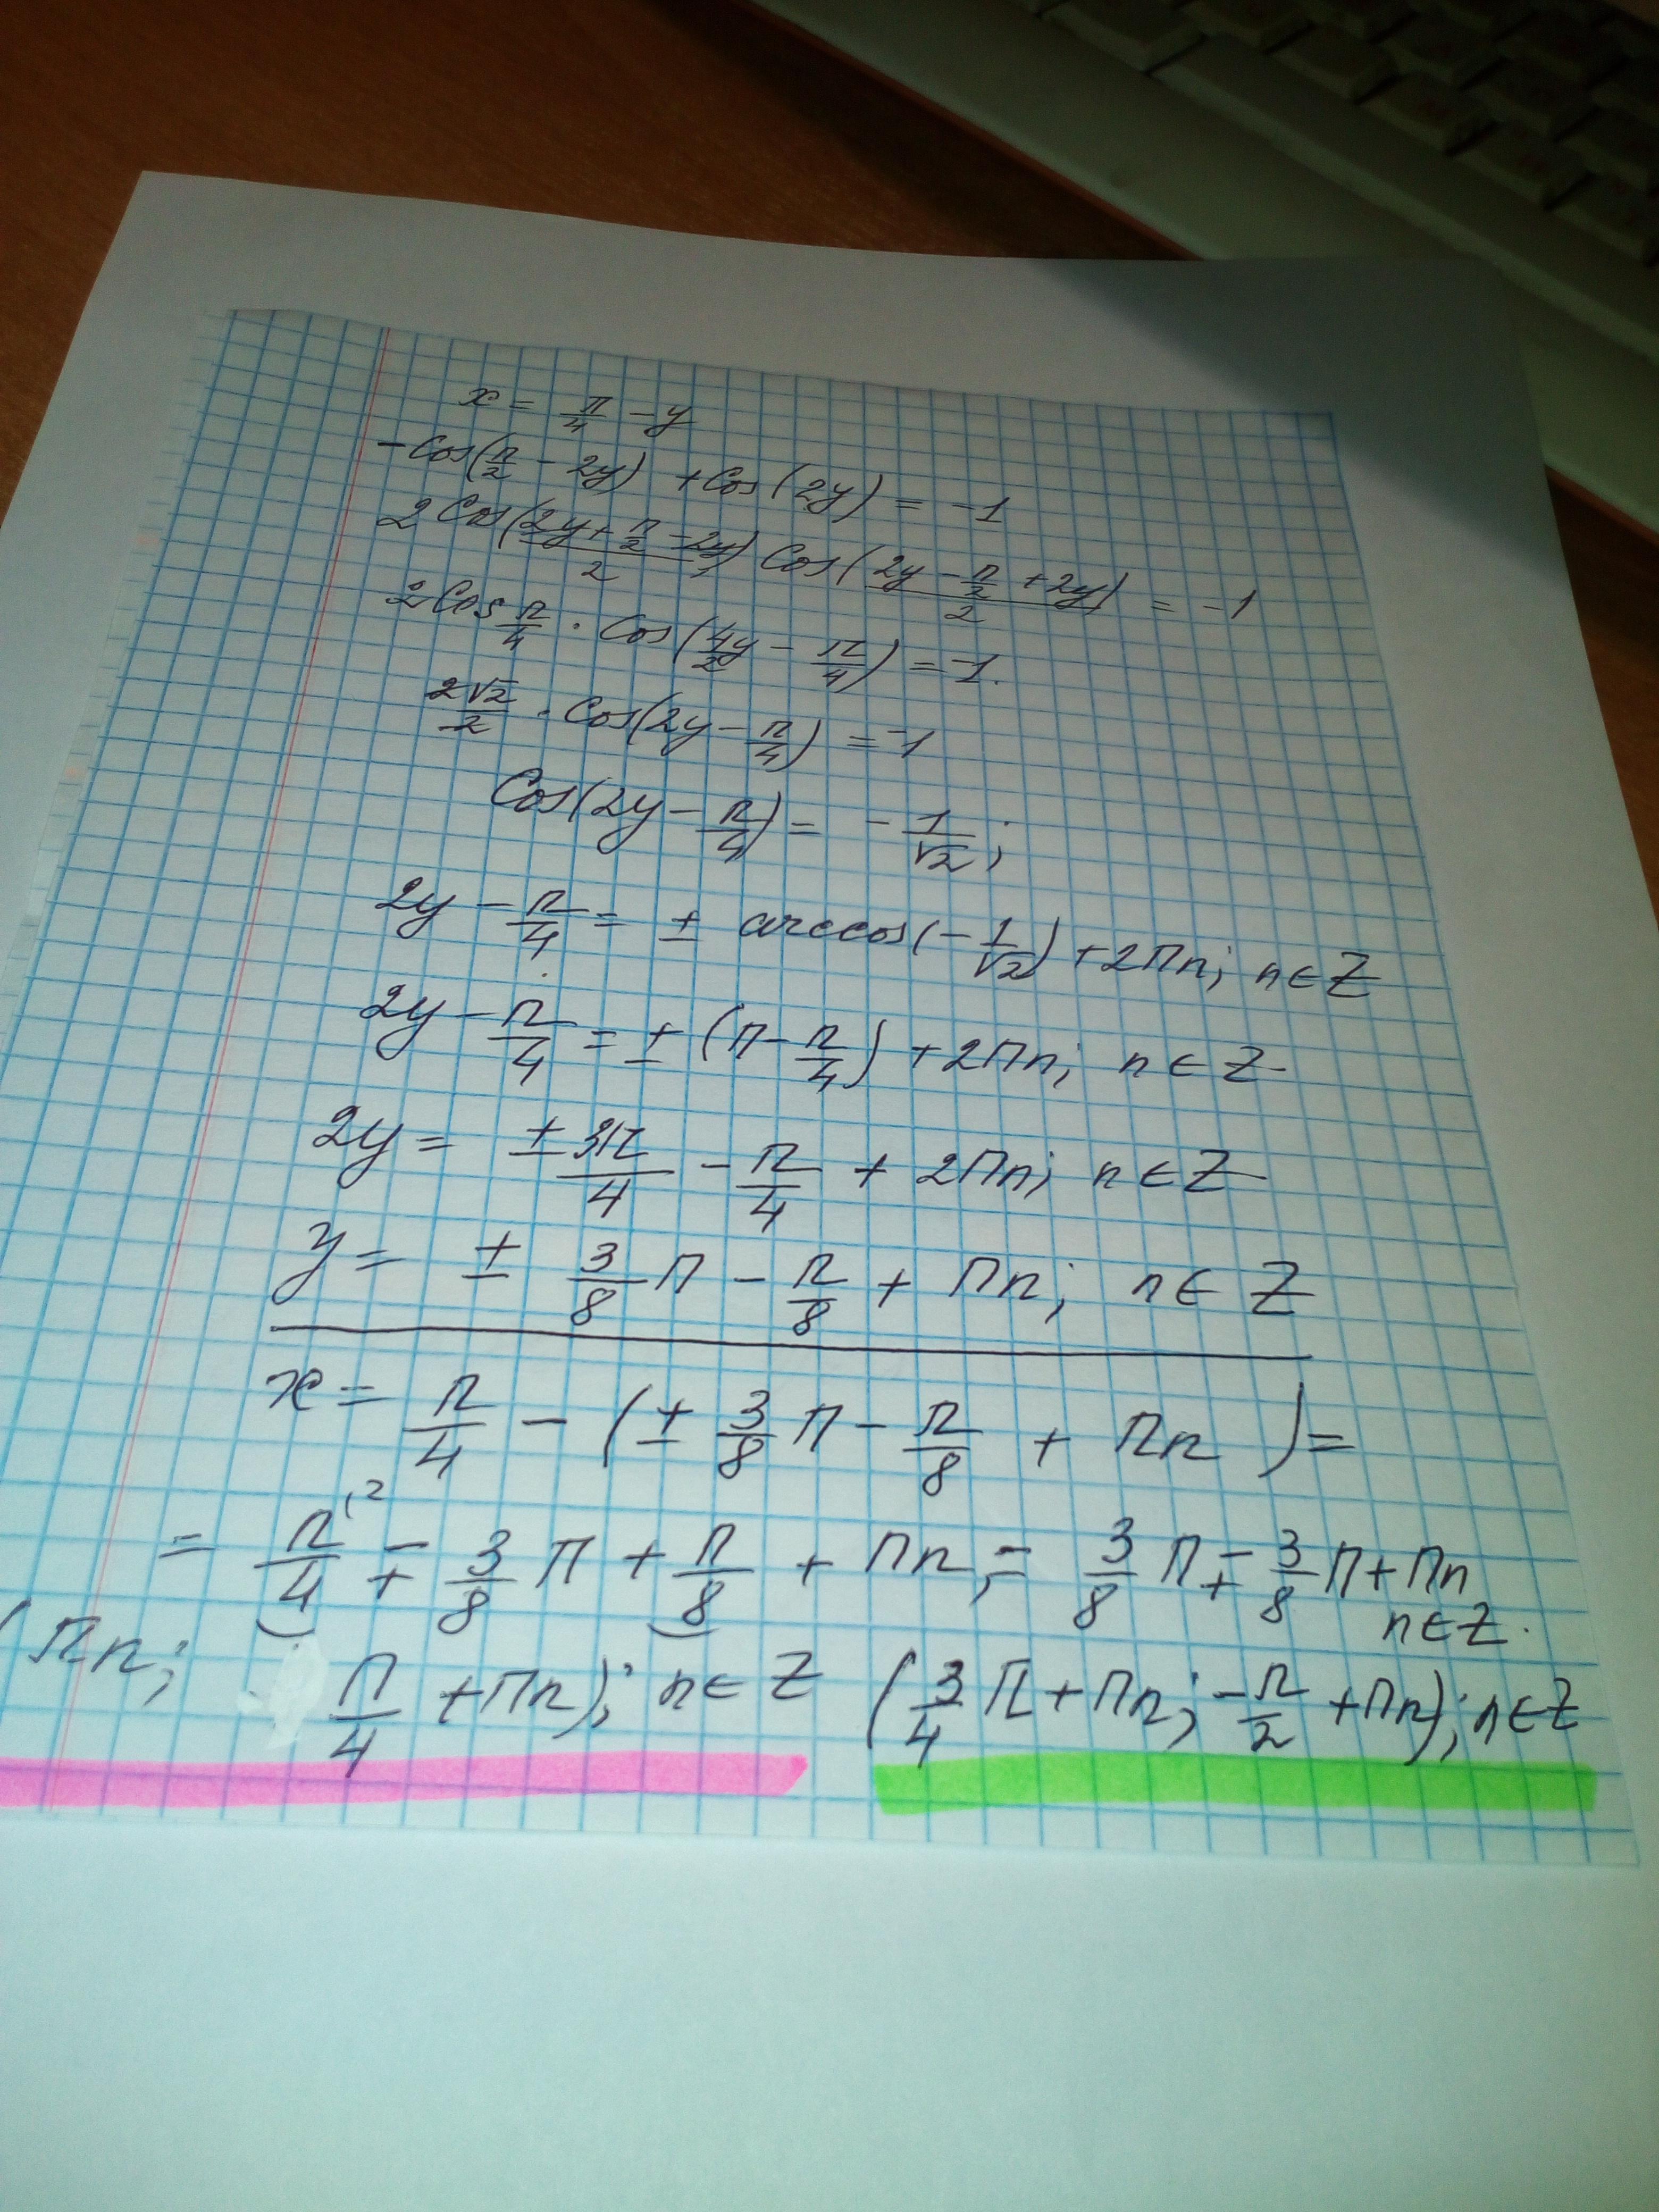 x = π/4 - y
-Cos(π/2 - 2y) + Cos(2y) = -1
2Cos((2y + π/2 - 2y)/2) Cos((2y - π/2 + 2y)/2) = -1
2Cos π/4 · Cos(4y/2 - π/4) = -1.
2√2/2 · Cos(2y - π/4) = -1
Cos(2y - π/4) = - 1/√2;
2y - π/4 = ± arccos(-1/√2) + 2πn; n∈Z
2y - π/4 = ± (π - π/4) + 2πn; n∈Z
2y = ± 3π/4 - π/4 + 2πn; n∈Z
y = ± 3/8 π - π/8 + πn; n∈Z
x = π/4 - (± 3/8 π - π/8 + πn) =
= π/4 (2 ∓ 3/8 π + π/8 + πn; = 3/8 π ∓ 3/8 π + πn
n∈Z.
(πn; π/4 + πn); n∈Z (3/4 π + πn; -π/2 + πn); n∈Z